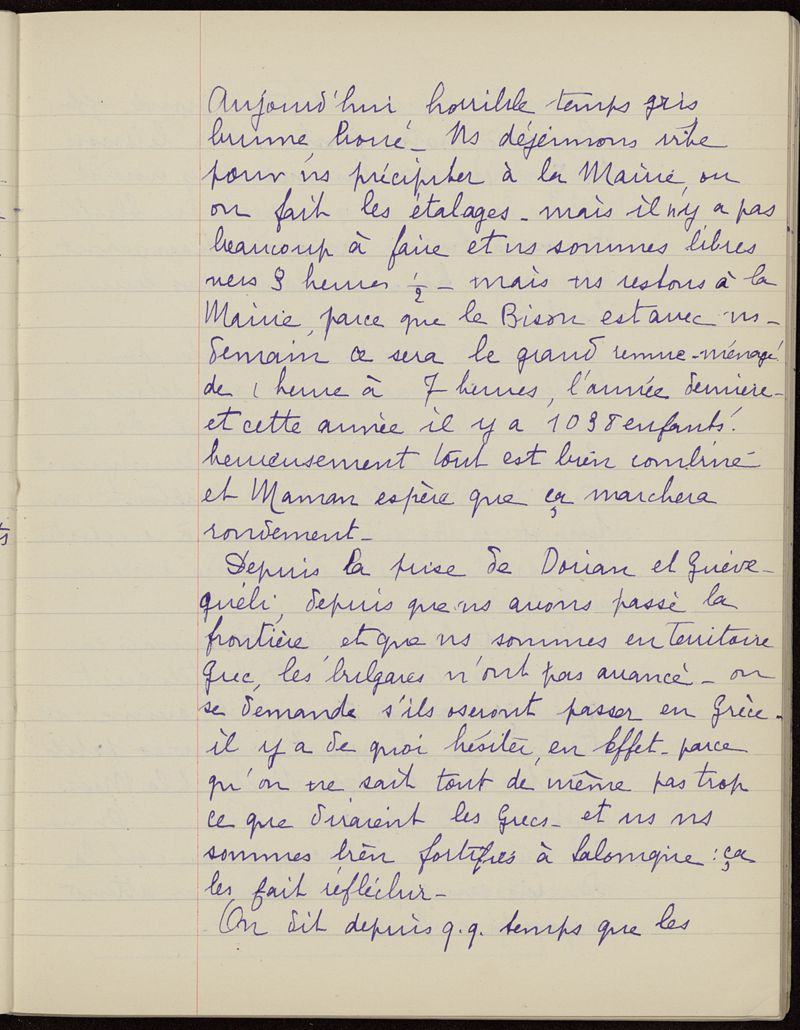 Aujourd'hui horrible temps gris
brume, boue - Ns déjeunons vite
pour ns précipiter à la Mairie, ou
on fait les étalages - mais il n'y a pas
beaucoup à faire et ns sommes libres
vers 3 heures 1/2 - mais ns restons à la
Mairie, parce que le Bison est avec ns -
demain ce sera le grand remue-ménage
de 1 heure à 7 heures, l'année dernière -
et cette année il y a 1098 enfants!
heureusement tout est bien combiné
et Maman espère que ça marchera
rondement -
Depuis la prise de Doiran et Guève-
guéli, depuis que ns avons passé la
frontière, et que ns sommes en territoire
Grec, les bulgares n'ont pas avancé - on
se demande s'ils oseront passer en Grèce -
il y a de quoi hésiter, en effet - parce
qu'on ne sait tout de même pas trop
ce que diraient les Grecs - et ns ns
sommes bien fortifiés à Salonique : ça
les fait réfléchir -
On dit depuis q.q. temps que les